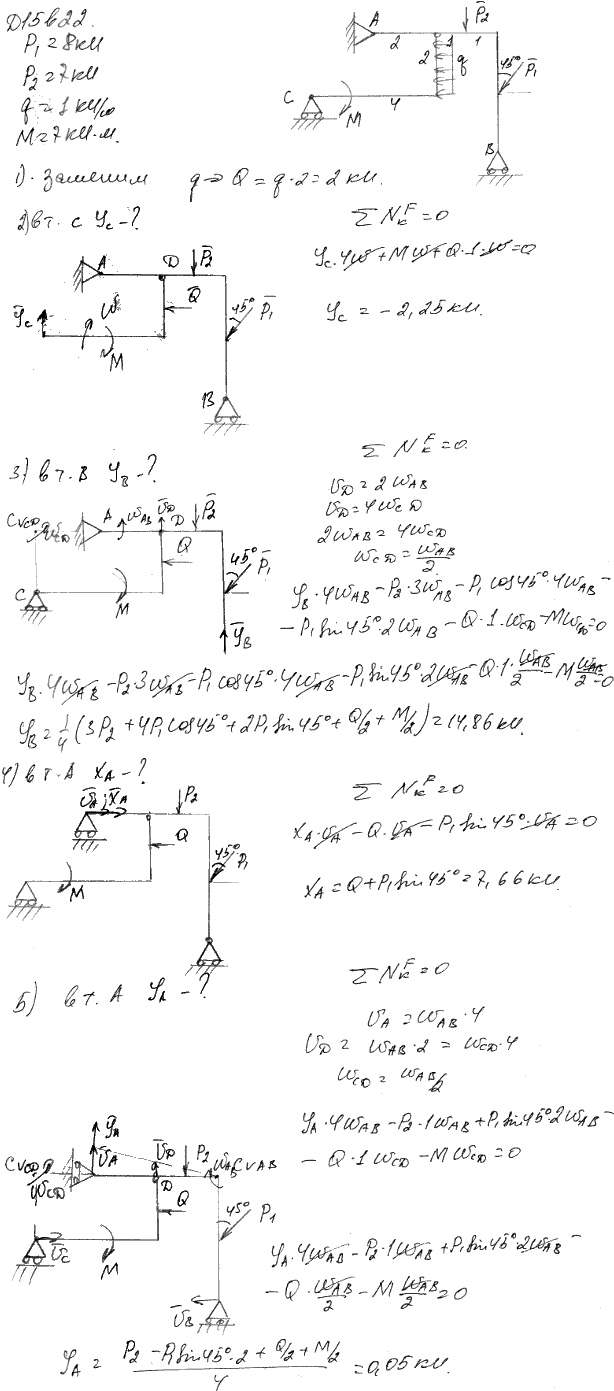 D15b22.
P₁ = 8 кН
P₂ = 7 кН
q = 1 кН/м
M = 7 кН·м.
A 2 2 3 1 P̄₂ q 45° P̄₁
C M 4 B
1). Заменим q ⇒ Q = q·2 = 2 кН.
2) в т. C Y_C - ?
Σ N_k^F = 0
Y_C·4ω + Mω + Q·1·ω = 0
Y_C = -2,25 кН.
A D P̄₂ Q̄ 45° P̄₁
Ȳ_C ω M B
3) в т. B Y_B - ?
Σ N_k^F = 0.
V_D = 2ω_AB
V_D = 4ω_CD
2ω_AB = 4ω_CD
ω_CD = ω_AB/2
C_VCD ω_CD A ω_AB V̄_D D P̄₂
Q 45° P̄₁
C M Ȳ_B
Y_B·4ω_AB - P₂·3ω_AB - P₁cos45°·4ω_AB -
- P₁sin45°·2ω_AB - Q·1·ω_CD - Mω_CD = 0
Y_B·4ω_AB - P₂3ω_AB - P₁cos45°·4ω_AB - P₁sin45°·2ω_AB - Q·1·ω_AB/2 - M ω_AB/2 = 0
Y_B = 1/4 (3P₂ + 4P₁cos45° + 2P₁sin45° + Q/2 + M/2) = 14,86 кН.
4) в т. A X_A - ?
Σ N_k^F = 0
X_A·V_A - Q·V_A - P₁sin45°·V_A = 0
X_A = Q + P₁sin45° = 7,66 кН.
V̄_A; X̄_A P₂
Q 45° P₁
M
5) в т. A Y_A - ?
Σ N_k^F = 0
V_A = ω_AB·4
V_D = ω_AB·2 = ω_CD·4
ω_CD = ω_AB/2
Y_A·4ω_AB - P₂·1ω_AB + P₁sin45°·2ω_AB -
- Q·1ω_CD - Mω_CD = 0
Ȳ_A V̄_A V̄_D P₂ ω_AB C_VAB
C_VCD ω_CD D Q 45° P₁
V̄_C M V̄_B
Y_A·4ω_AB - P₂·1ω_AB + P₁sin45°·2ω_AB -
- Q·ω_AB/2 - M ω_AB/2 = 0
Y_A = (P₂ - P₁sin45°·2 + Q/2 + M/2)/4 = 0,05 кН.